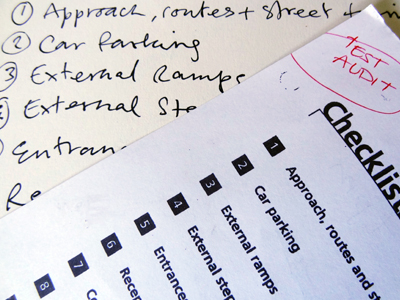 ① Approach, routes + street
② Car Parking
③ External Ramps
External Ste
Entran
Re
TEST
AUDIT
Checklist
1 Approach, routes and st
2 Car parking
3 External ramps
4 External step
5 Entrances
6 Recep
7 Co
8